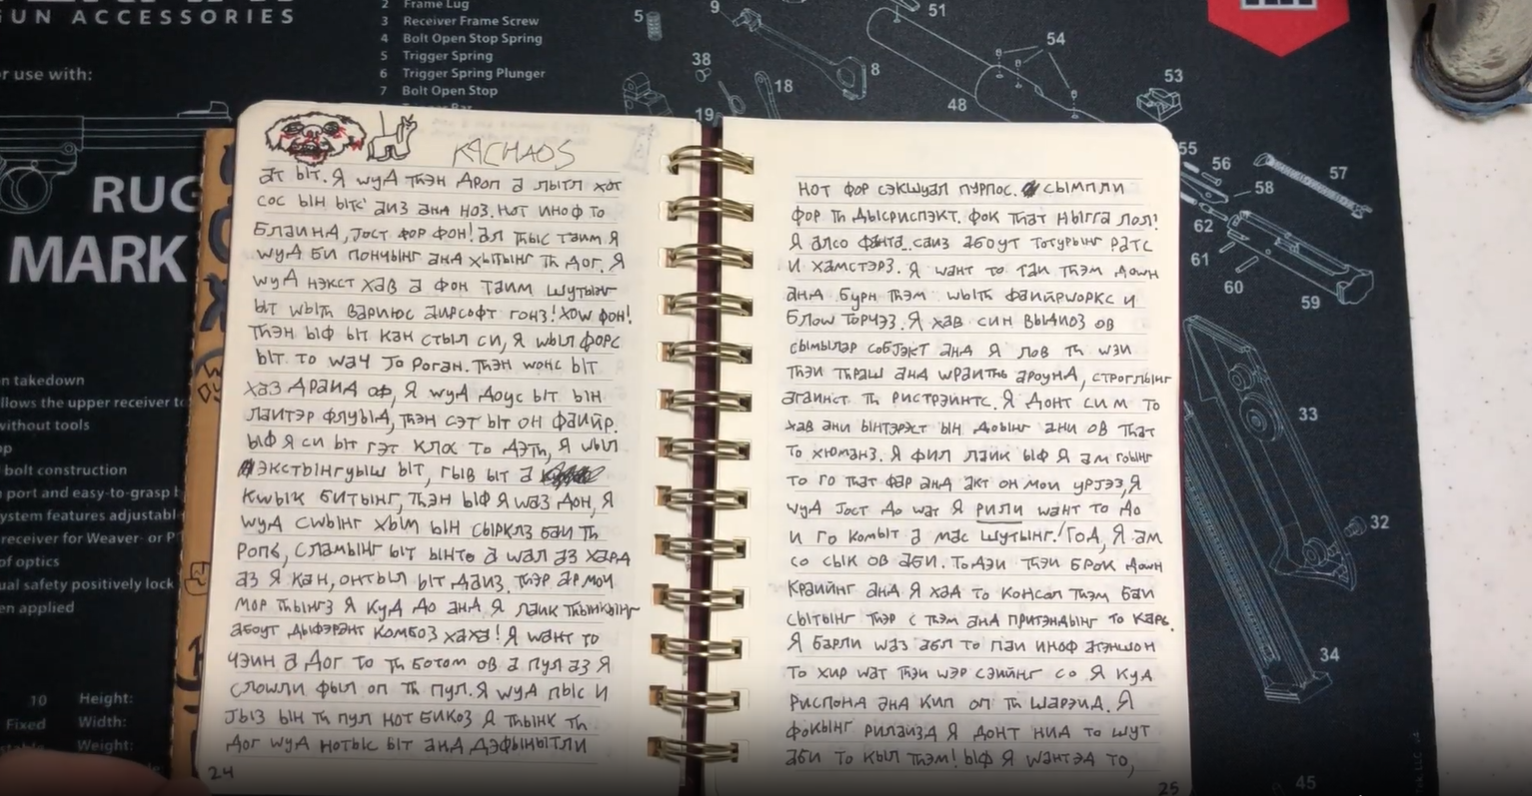 GUN ACCESSORIES
r use with:
RUG
MARK
n takedown
llows the upper receiver to
without tools
bolt construction
port and easy-to-grasp
ystem features adjustabl
receiver for Weaver- or P
of optics
ual safety positively lock
en applied
10 Height:
Fixed Width:
Weight:
2 Frame Lug
3 Receiver Frame Screw
4 Bolt Open Stop Spring
5 Trigger Spring
6 Trigger Spring Plunger
7 Bolt Open Stop
5
9
38
19
18
8
51
54
48
53
55
56
57
58
62
61
60
59
33
32
34
45
KACHAOS
ат ыт. Я wyд тhэн дроп а лытл хот
сос ын ытс' аиз анд ноз. нот иноф то
блаинд, jост фор фон! ал тhыс таим Я
wyд би пончынг анд хытынг тh дог. Я
wyд нэкст хав а фон таим шутынг
ыт wытh вариюс аирсофт гонз! хоw фон!
тhэн ыф ыт кан стыл си, я wыл форс
ыт то waч Jо Роган. тhэн wонс ыт
хаз драид оф, Я wyд доус ыт ын
лаитэр флуыд, тhэн сэт ыт он фаийр.
ыф Я си ыт гэт клос то дэтh, Я wыл
экстынгуыш ыт, гыв ыт а
кwык битынг, тhэн ыф Я wаз дон, Я
wyд сwынг хым ын сырклз баи тh
ропь, сламынг ыт ынто а wал аз хард
аз Я кан, онтыл ыт даиз. тhэр ар мои
мор тhынгз Я куд до анд Я лаик тhынкынг
абоут дыфэрэнт комбоз хаха! Я want то
чэин а дог то тh ботом ов а пул аз Я
слоwли фыл оп тh пул. Я wyд пыс и
jыз ын тh пул нот бикоз Я тhынк тh
дог wyд нотыс ыт анд дэфынытли
24
нот фор сэкшуал пурпос. сымпли
фор тh дысриспэкт. фок тhат ныгга лол!
Я алсо фанта саиз абоут тотурынг ратс
и хамстэрз. Я want то таи тhэм доwн
анд бурн тhэм wытh фаийрwоркс и
блоw торчэз. Я хав син выдиоз ов
сымылар собjэкт анд Я лов тh wэи
тhэи тhраш анд wраитhь ароунд, строглынг
агаинст тh ристрэинтс. Я донт сим то
хав ани ынтэрэст ын доынг ани ов тhат
то хюманз. Я фил лаик ыф Я ам гоынг
то го тhат фар анд акт он мои урjэз, Я
wyд jост до wат Я рили want то до
и го комыт а мас шутынг! Год, Я ам
со сык ов аби. тодэи тhэи брок доwн
краийнг анд Я хад то консол тhэм баи
сытынг тhэр с тhэм анд притэндынг то карь.
Я барли wаз абл то паи иноф атэншон
то хир wат тhэи wэр сэийнг со Я куд
риспонд анд кип оп тh шарэид. Я
фокынг рилаизд Я донт нид то шут
аби то кыл тhэм! ыф Я wантэд то,
25